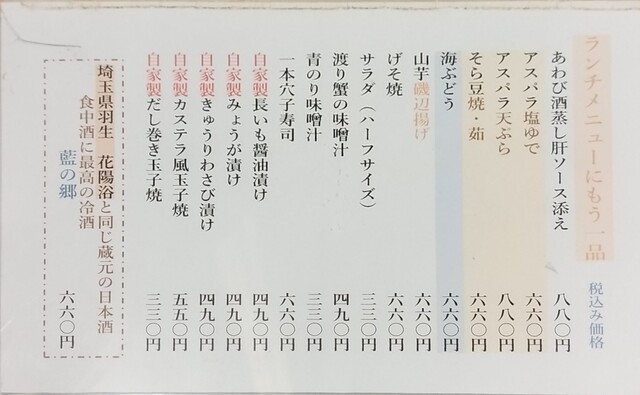 ランチメニューにもう一品
税込み価格
あわび酒蒸し肝ソース添え 八八〇円
アスパラ塩ゆで 六六〇円
アスパラ天ぷら 八八〇円
そら豆焼・茹 六六〇円
海ぶどう 六六〇円
山芋磯辺揚げ 六六〇円
げそ焼 六六〇円
サラダ（ハーフサイズ） 三三〇円
渡り蟹の味噌汁 四九〇円
青のり味噌汁 三三〇円
一本穴子寿司 六六〇円
自家製長いも醤油漬け 四九〇円
自家製みょうが漬け 四九〇円
自家製きゅうりわさび漬け 四九〇円
自家製カステラ風玉子焼 五五〇円
自家製だし巻き玉子焼 三三〇円
埼玉県羽生 花陽浴と同じ蔵元の日本酒
食中酒に最高の冷酒
藍の郷 六六〇円